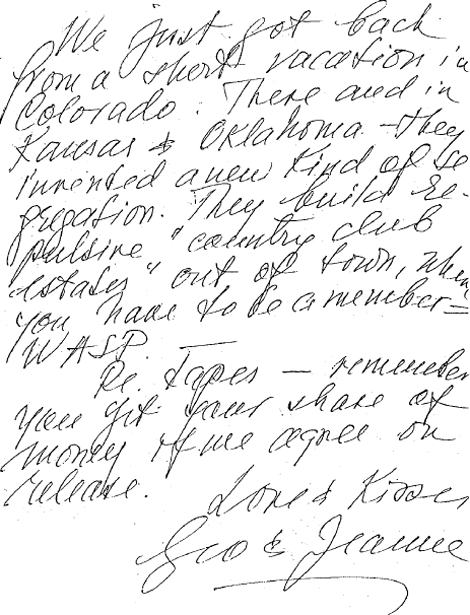 We just got back
from a short vacation in
Colorado. There and in
Kansas & Oklahoma - they
invented a new kind of se
gregation. They build re-
pulsive "country club
estates" out of town, when
you have to be a member =
WASP. —
Re. tapes — remember
you get your share of
money if we agree on
release.
Love & Kisses
Geo & Jeanne